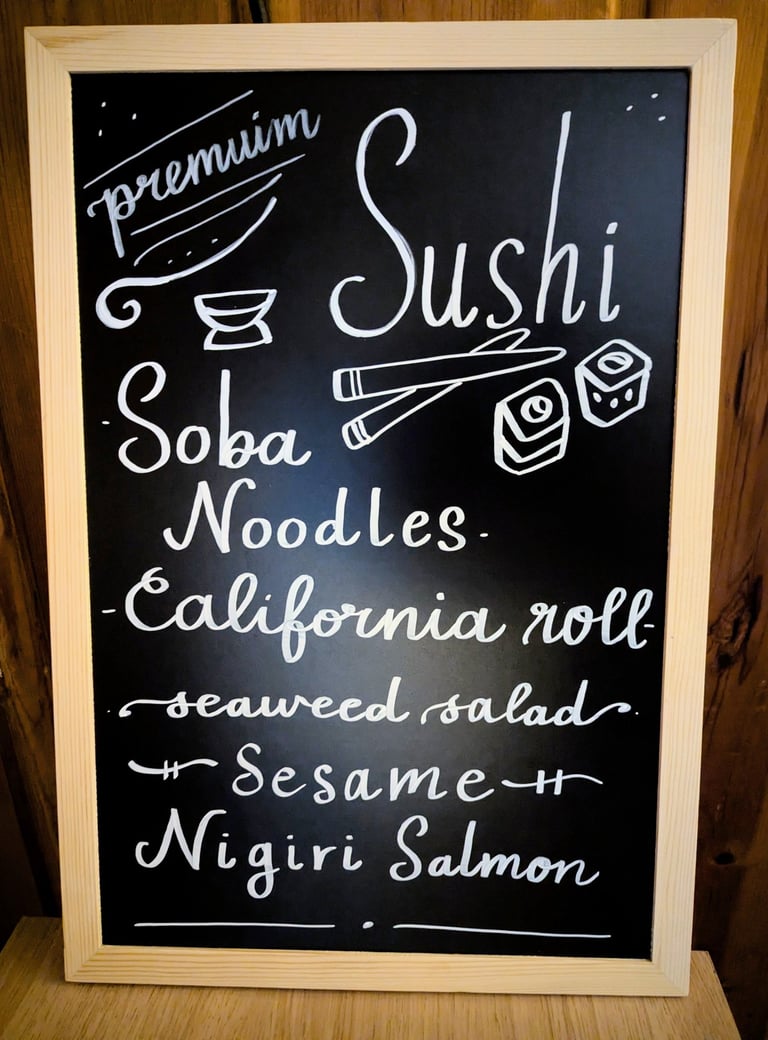 premuim
Sushi
Soba
Noodles
California roll
seaweed salad
Sesame
Nigiri Salmon